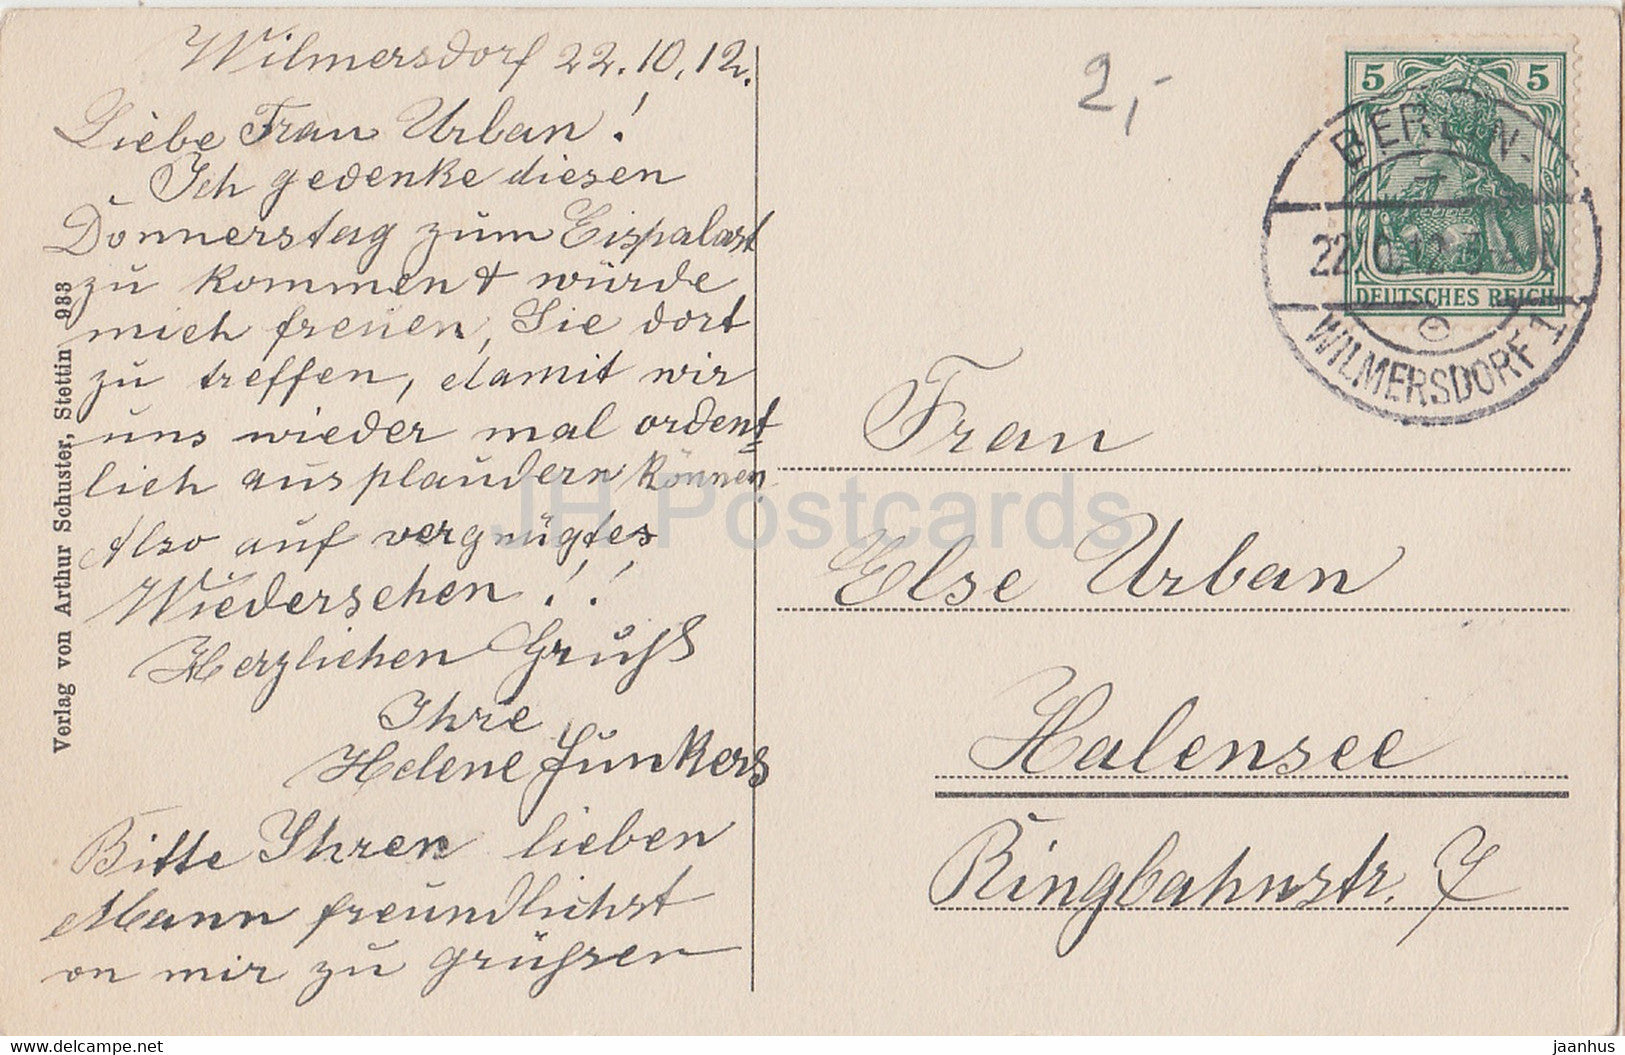 Wilmersdorf 22.10.12.
Liebe Frau Urban!
Ich gedenke diesen
Donnerstag zum Eispalast
zu kommen & würde
mich freuen, Sie dort
zu treffen, damit wir
uns wieder mal ordent=
lich ausplaudern können.
Also auf vergnügtes
Wiedersehen!!
Herzlichen Gruß
Ihre
Helene Junkers
Bitte Ihren lieben
Mann freundlichst
von mir zu grüßen
Verlag von Arthur Schuster, Stettin 933
2,-
5 5
DEUTSCHES REICH
BERLIN-
22.10.12.3-4N
WILMERSDORF 1
Frau
Else Urban
Halensee
Ringbahnstr. 7
JH Postcards
www.delcampe.net
jaanhus